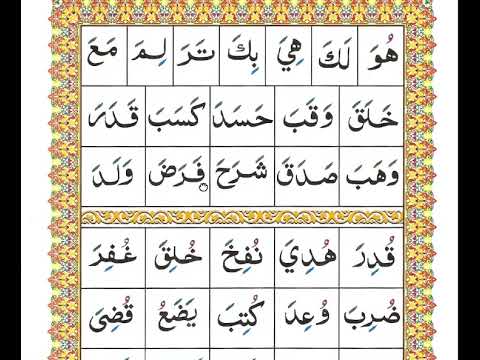 هُوَ لَكَ هِيَ بِكَ تَرَ لِمَ مَعَ
خَلَقَ وَقَبَ حَسَدَ كَسَبَ قَدَرَ
وَهَبَ صَدَقَ شَرَحَ فَرَضَ وَلَدَ
قُدِرَ هُدِيَ نُفِخَ خُلِقَ غُفِرَ
ضُرِبَ وُعِدَ كُتِبَ يَضَعُ قُضِىَ